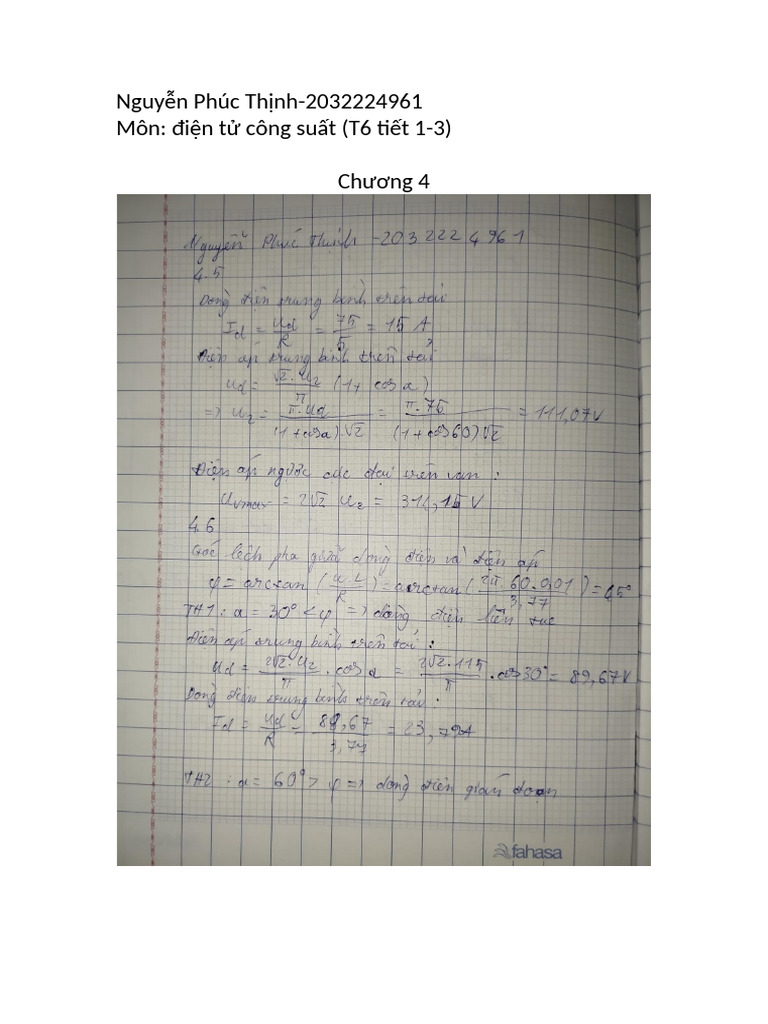 Nguyễn Phúc Thịnh-2032224961
Môn: điện tử công suất (T6 tiết 1-3)
Chương 4
Nguyễn Phúc Thịnh -2032224961
4.5
Dòng điện trung bình trên tải
Id = Ud/R = 75/5 = 15 A
Điện áp trung bình trên tải
Ud = √2.U2/π (1+ cosα)
=> U2 = π.Ud/(1+cosα).√2 = π.75/(1+cos60)√2 = 111,07V
Điện áp ngược cực đại trên van :
Uvmax = 2√2 U2 = 314,15 V
4.6
Góc lệch pha giữa dòng điện và điện áp
φ = arctan (ωL/R) = arctan (2π.60.0,01/3,77) = 45°
TH1 : α = 30° < φ => dòng điện liên tục
Điện áp trung bình trên tải :
Ud = 2√2.U2/π . cosα = 2√2.115/π . cos30° = 89,67V
Dòng điện trung bình trên tải :
Id = Ud/R = 89,67/3,77 = 23,79A
TH2 : α = 60° > φ => dòng điện gián đoạn
fahasa